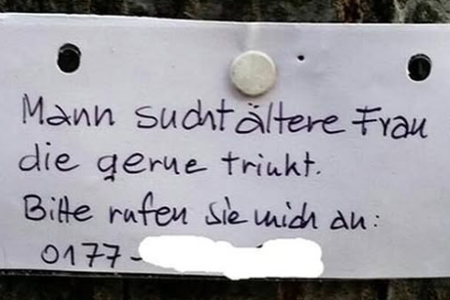 Mann sucht ältere Frau
die gerne trinkt.
Bitte rufen Sie mich an:
0177-